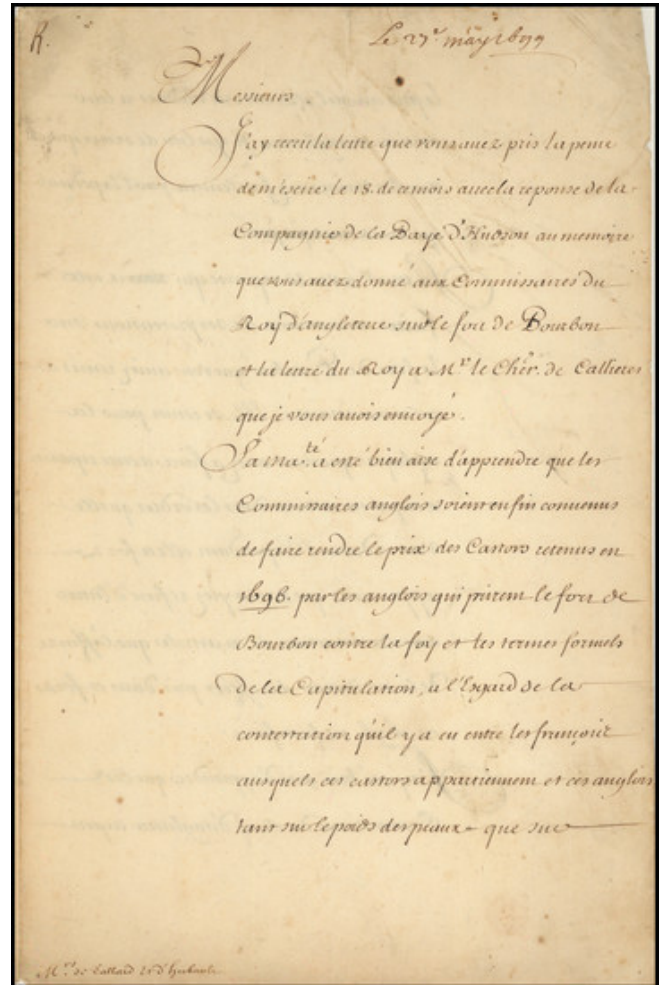 R.
Le 27e. may 1699
Messieurs
J'ay receu la lettre que vous auez pris la peine
de m'escrire le 18. de ce mois auec la reponse de la
Compagnie de la Baye d'Hudson au memoire
que vous auez donné aux Commissaires du
Roy d'angleterre sur le fort de Bourbon
et la lettre du Roy a Mr. le Cher. de Callieres
que je vous auois enuoyé.
Sa Ma.té a esté bien aise d'apprendre que les
Commissaires anglois soient enfin conuenus
de faire rendre le prix des Castors retenus en
1696. par les anglois qui prirent le fort de
Bourbon contre la foy et les termes formels
de la Capitulation, a l'Esgard de la
contestation qu'il y a eu entre les françois
ausquels ces castors appartiennent et ces anglois
tant sur le poids des peaux que sur
Mrs. de Tallard et d'Herbault